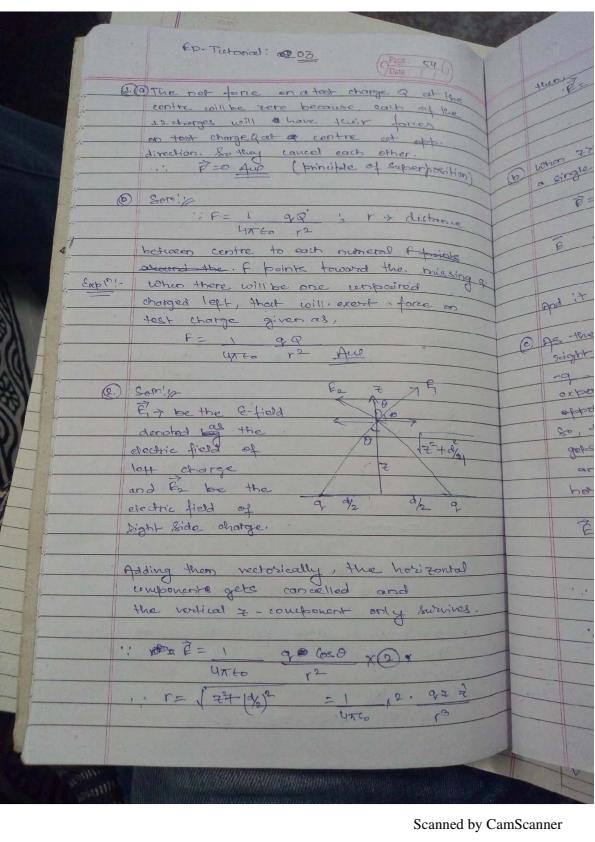 ED-Tutorial: 03
Page: 54
Date:
1. (a) The net force on a test charge Q at the
centre will be zero because each of the
12 charges will have their forces
on test charge Q at centre at opp.
direction. So they cancel each other.
∴ F⃗ = 0 Ans (principle of superposition)
(b) Son:
∵ F = 1/4πε₀ qQ/r² ; r → distance
between centre to each numeral F points
around the. F points toward the missing q
Expn:- When there will be one unpaired
charged left, that will exert force on
test charge given as,
F = 1/4πε₀ qQ/r² Ans
2. Son:
E⃗₁ → be the E-field
denoted as the
electric field of
left charge
and E⃗₂ be the
electric field of
right side charge.
E₂ z E₁
θ
θ
√z²+(d/2)²
z
q d/2 d/2 q
Adding them vectorically, the horizontal
components gets cancelled and
the vertical z-component only survives.
∵ E⃗ = 1/4πε₀ q Cosθ/r² × 2
∴ r = √z²+(d/2)² = 1/4πε₀ · 2 · qz ẑ/r³
then,
E⃗ =
(b) When z>
a single
E⃗ =
E⃗
And it
(c) As the
right
-q
So,
gets
E⃗
Scanned by CamScanner